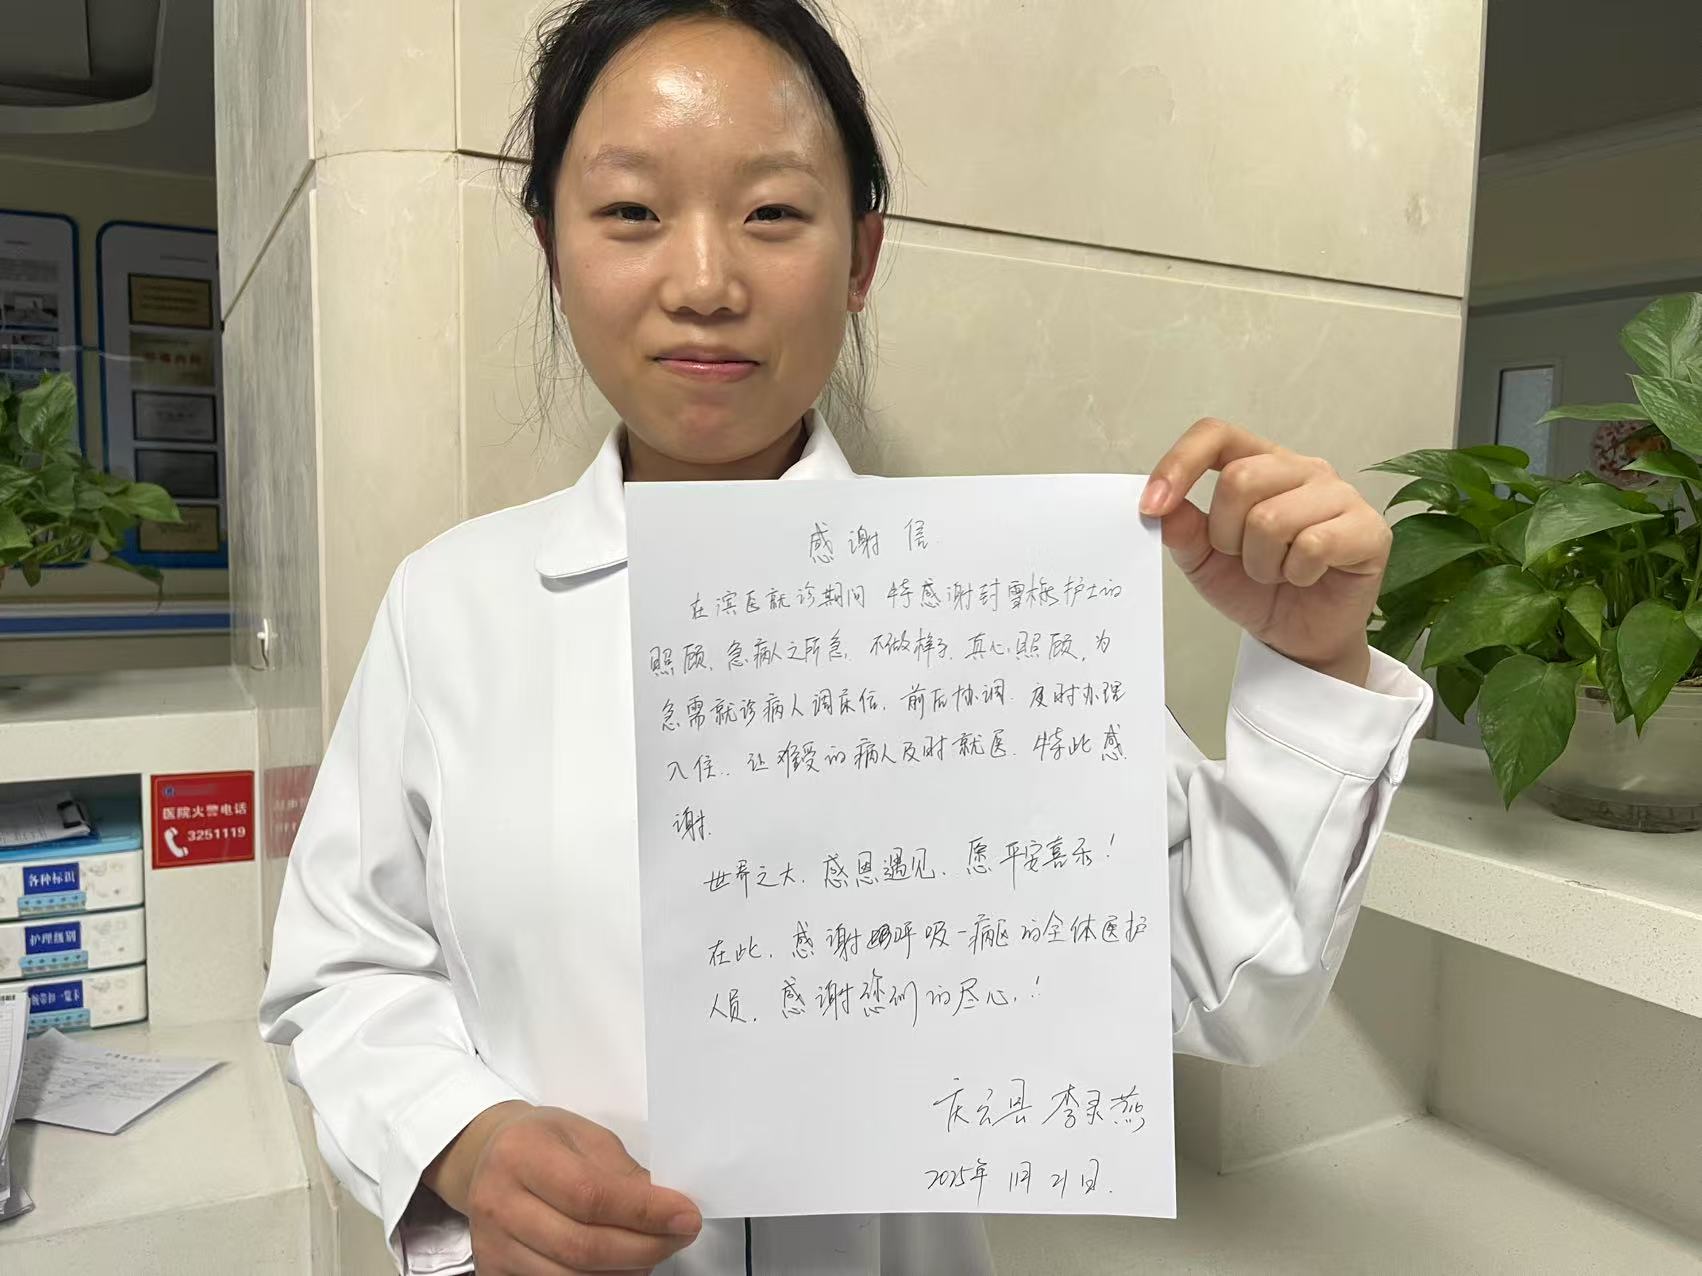 感谢信
在滨医就诊期间 特感谢封雪梅护士的
照顾、急病人之所急、不做样子、真心照顾、为
急需就诊病人调床位、前后协调、及时办理
入住、让难受的病人及时就医、特此感
谢.
世界之大、感恩遇见、愿平安喜乐！
在此、感谢呼吸一病区的全体医护
人员、感谢您们的尽心！
庆云县 李灵燕
2025年11月21日.
医院火警电话
3251119
各种标识
护理级别